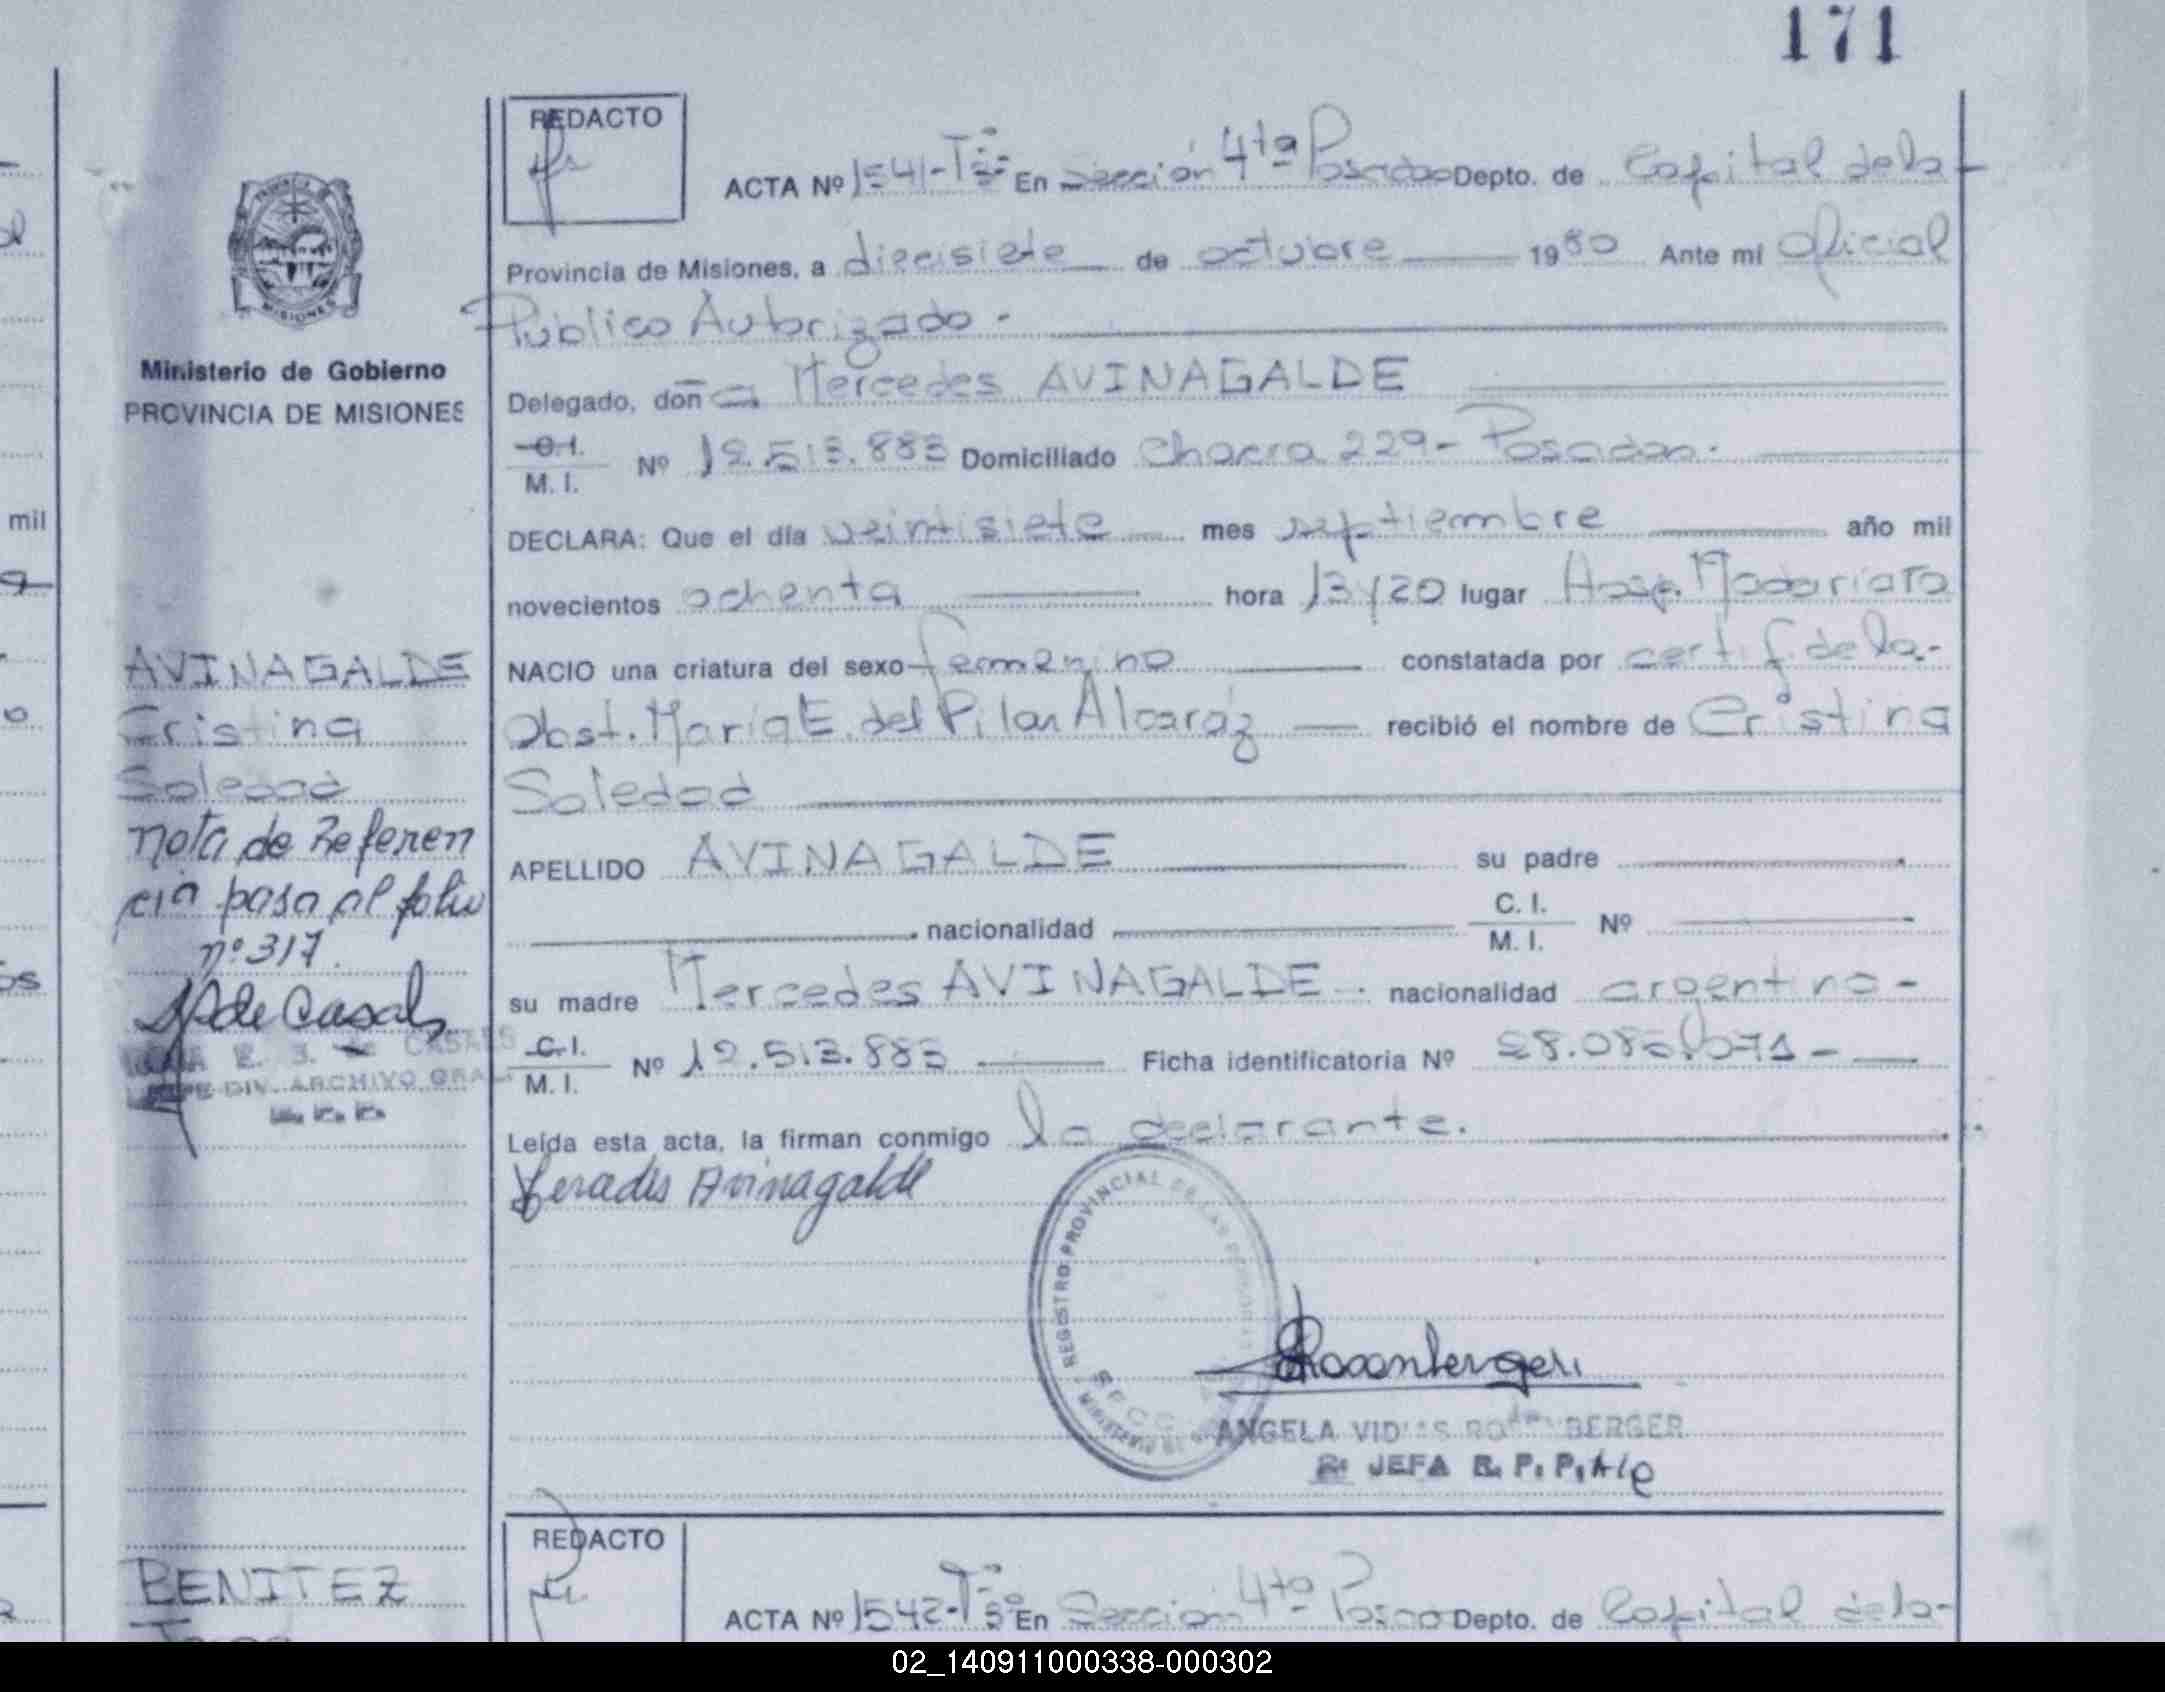 171
REDACTO
ACTA Nº 1541-Tº5º En Sección 4ta Posadas Depto. de Capital de la
Provincia de Misiones, a diecisiete de octubre 1980 Ante mí Oficial
Público Autorizado.
Delegado, doña Mercedes AVINAGALDE
C.I.
M. I. Nº 12.513.883 Domiciliado Chacra 229- Posadas.
DECLARA: Que el día veintisiete mes septiembre año mil
novecientos ochenta hora 13y20 lugar Hosp. Madariaga
NACIO una criatura del sexo femenino constatada por certif. de la-
Obst. María E. del Pilar Alcaráz recibió el nombre de Cristina
Soledad
APELLIDO AVINAGALDE su padre
nacionalidad C. I.
M. I. Nº
su madre Mercedes AVINAGALDE. nacionalidad argentina-
C.I.
M. I. Nº 12.513.883 Ficha identificatoria Nº
Leída esta acta, la firman conmigo la declarante.
Mercedes Avinagalde
REGISTRO PROVINCIAL DE LAS PERSONAS
Rosenberger
ANGELA VID S RO BERGER
2º JEFA R. P. P. A/C
MISIONES
Ministerio de Gobierno
PROVINCIA DE MISIONES
AVINAGALDE
Cristina
Soledad
Nota de Referen
cia pasa al folio
nº 317.
de Casals
DIV. ARCHIVO GRAL
REDACTO
ACTA Nº 1542-Tº5º En Sección 4ta Posadas Depto. de Capital de la-
BENITEZ
mil
02_140911000338-000302